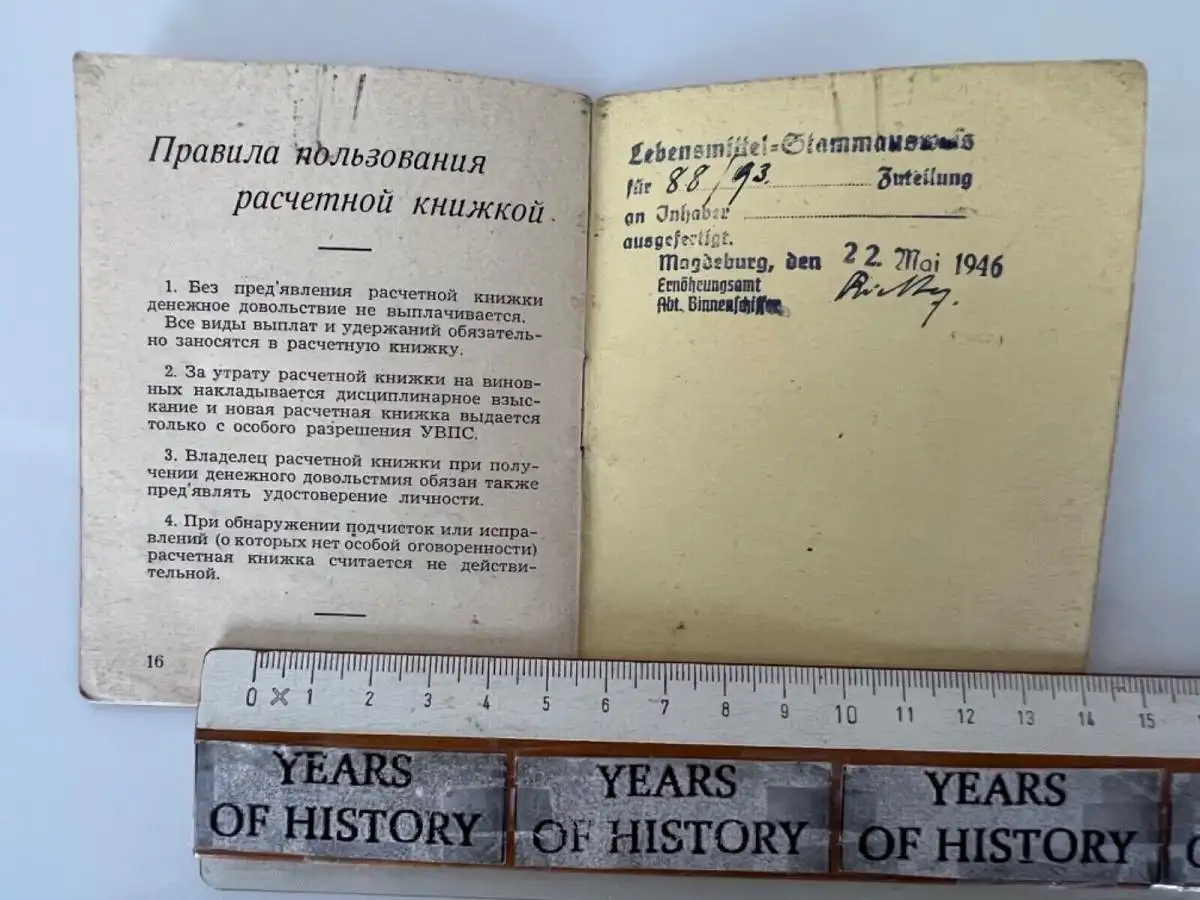 Правила пользования
расчетной книжкой
1. Без пред'явления расчетной книжки
денежное довольствие не выплачивается.
Все виды выплат и удержаний обязатель-
но заносятся в расчетную книжку.
2. За утрату расчетной книжки на винов-
ных накладывается дисциплинарное взыс-
кание и новая расчетная книжка выдается
только с особого разрешения УВПС.
3. Владелец расчетной книжки при полу-
чении денежного довольстмия обязан также
пред'являть удостоверение личности.
4. При обнаружении подчисток или испра-
влений (о которых нет особой оговоренности)
расчетная книжка считается не действи-
тельной.
16
Lebensmittel=Stammausweis
für 88/93. Zuteilung
an Inhaber
ausgefertigt.
Magdeburg, den 22. Mai 1946
Ernährungsamt
Abt. Binnenschiffer
0 1 2 3 4 5 6 7 8 9 10 11 12 13 14 15
YEARS
OF HISTORY
YEARS
OF HISTORY
YEARS
OF HISTORY